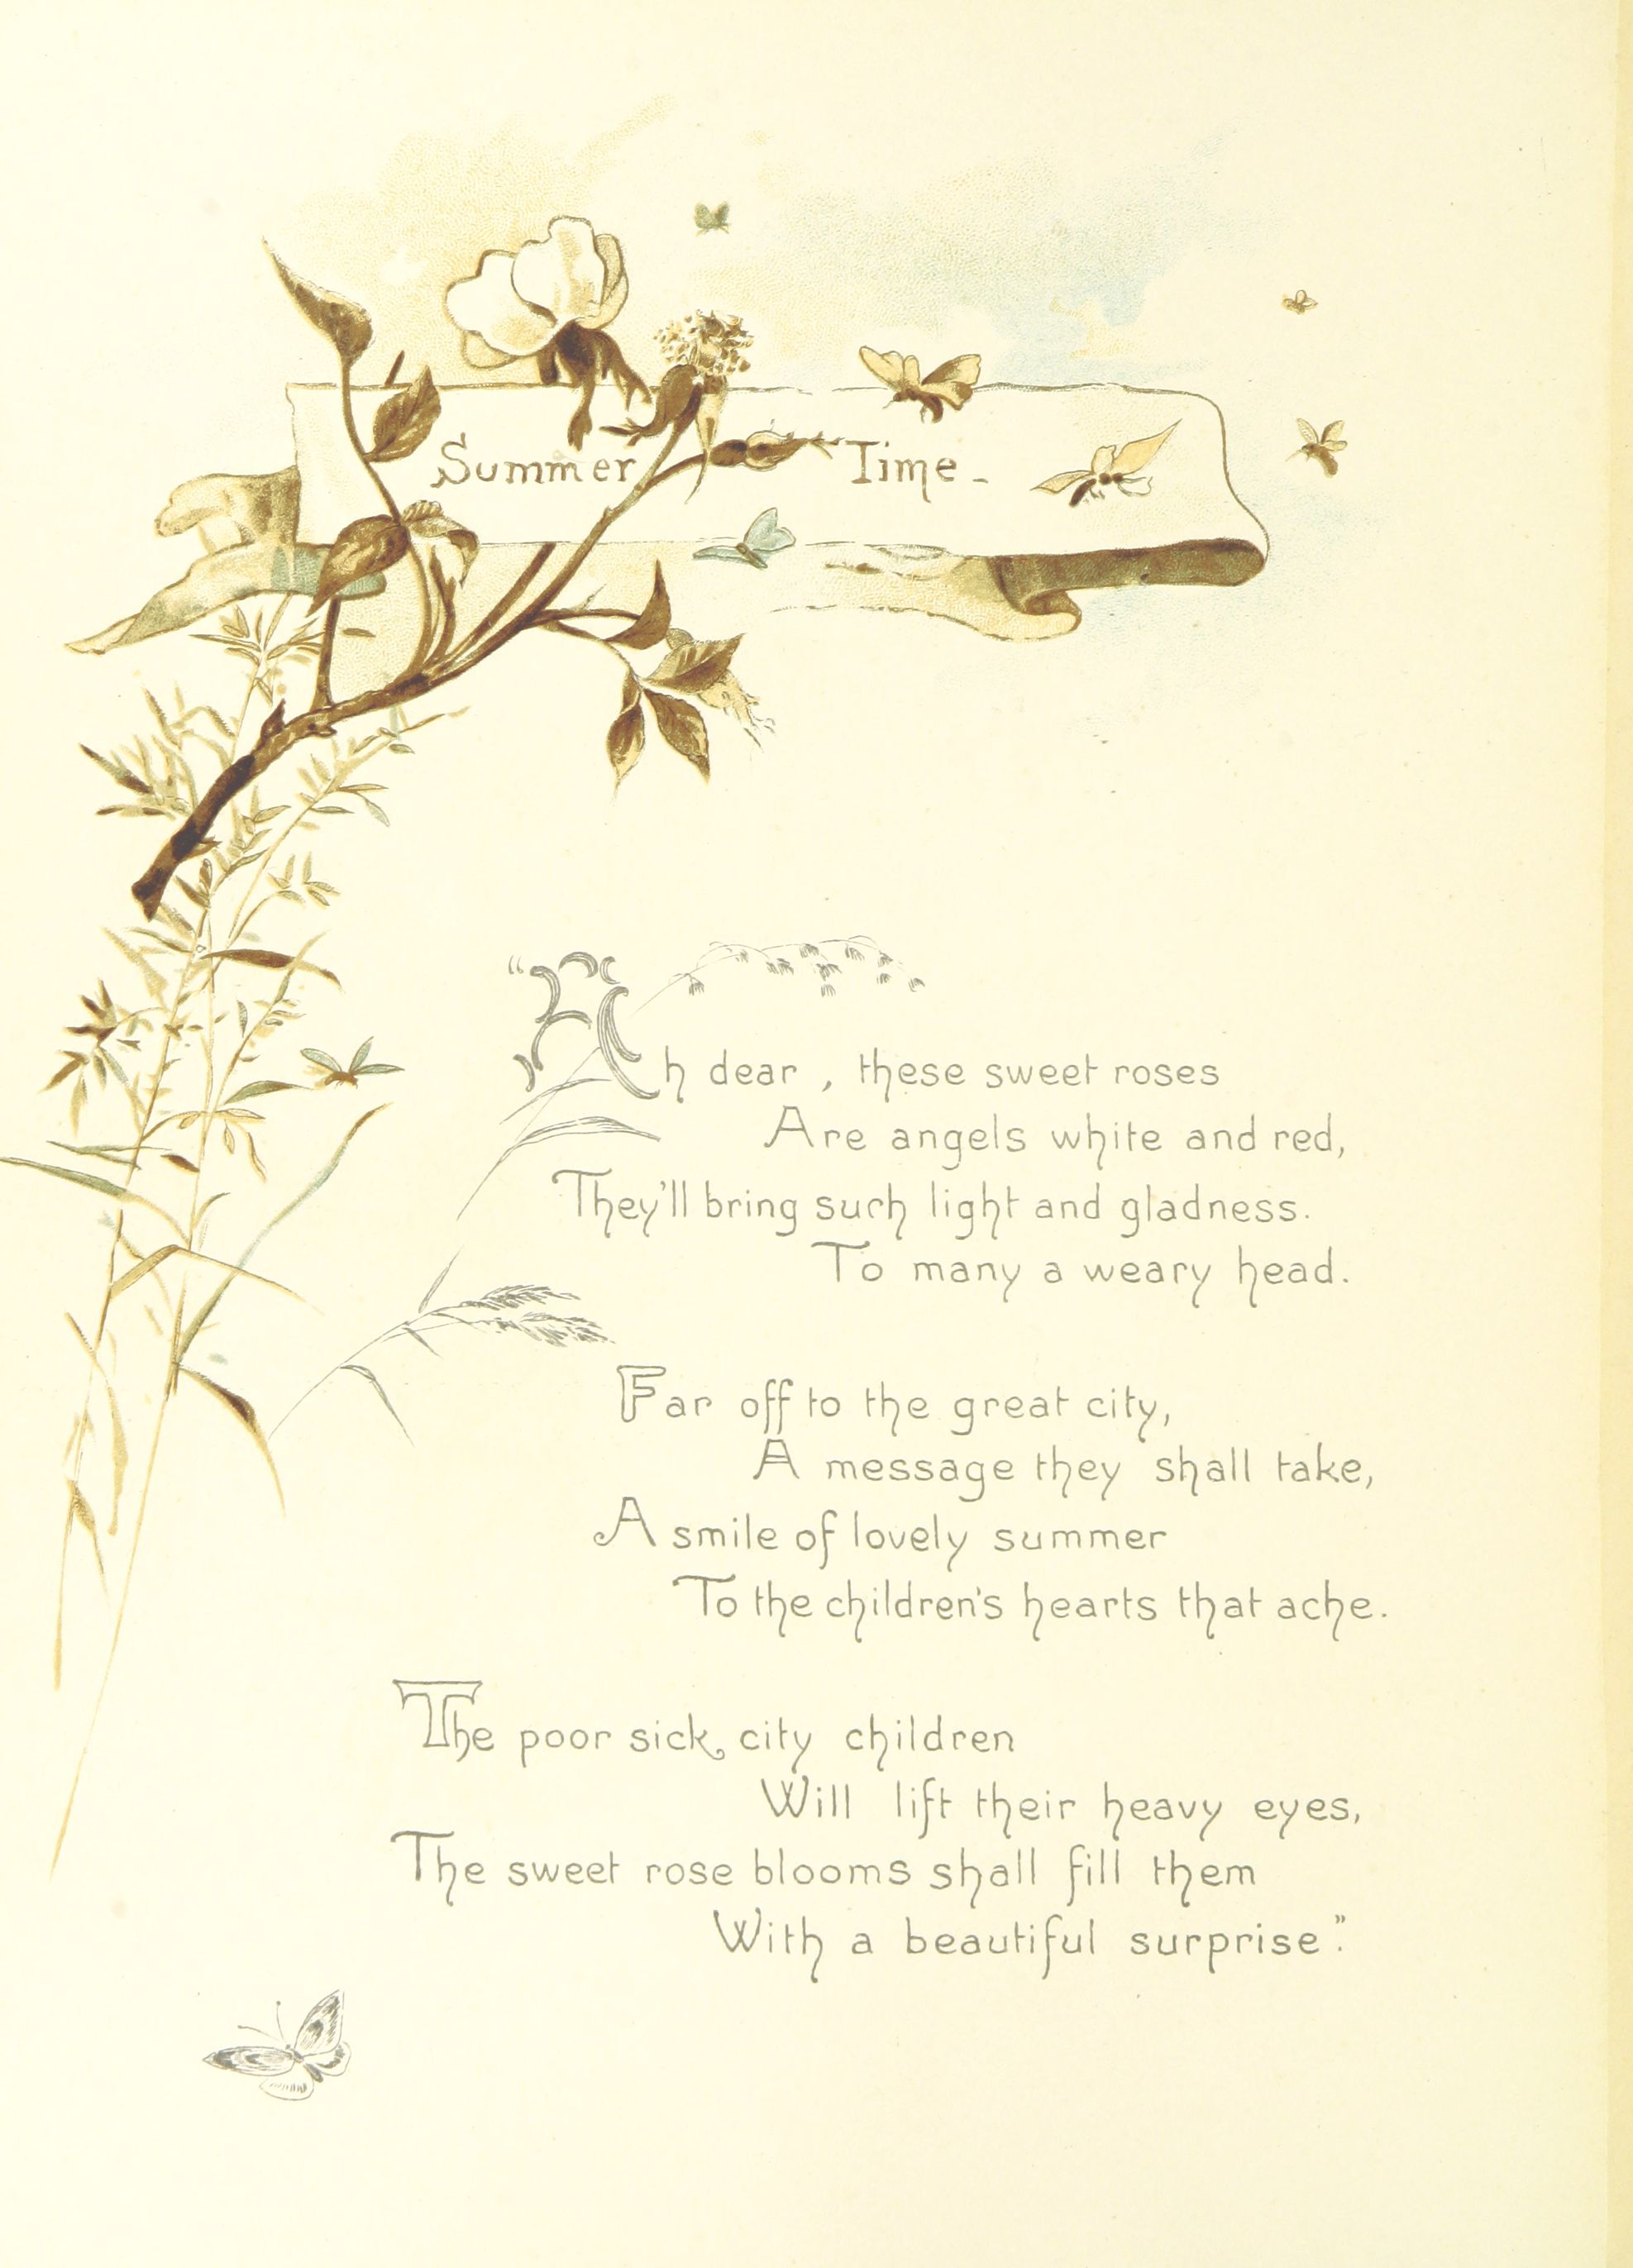 Summer Time-
"Ah dear, these sweet roses
Are angels white and red,
They'll bring such light and gladness.
To many a weary head.
Far off to the great city,
A message they shall take,
A smile of lovely summer
To the children's hearts that ache.
The poor sick city children
Will lift their heavy eyes,
The sweet rose blooms shall fill them
With a beautiful surprise."